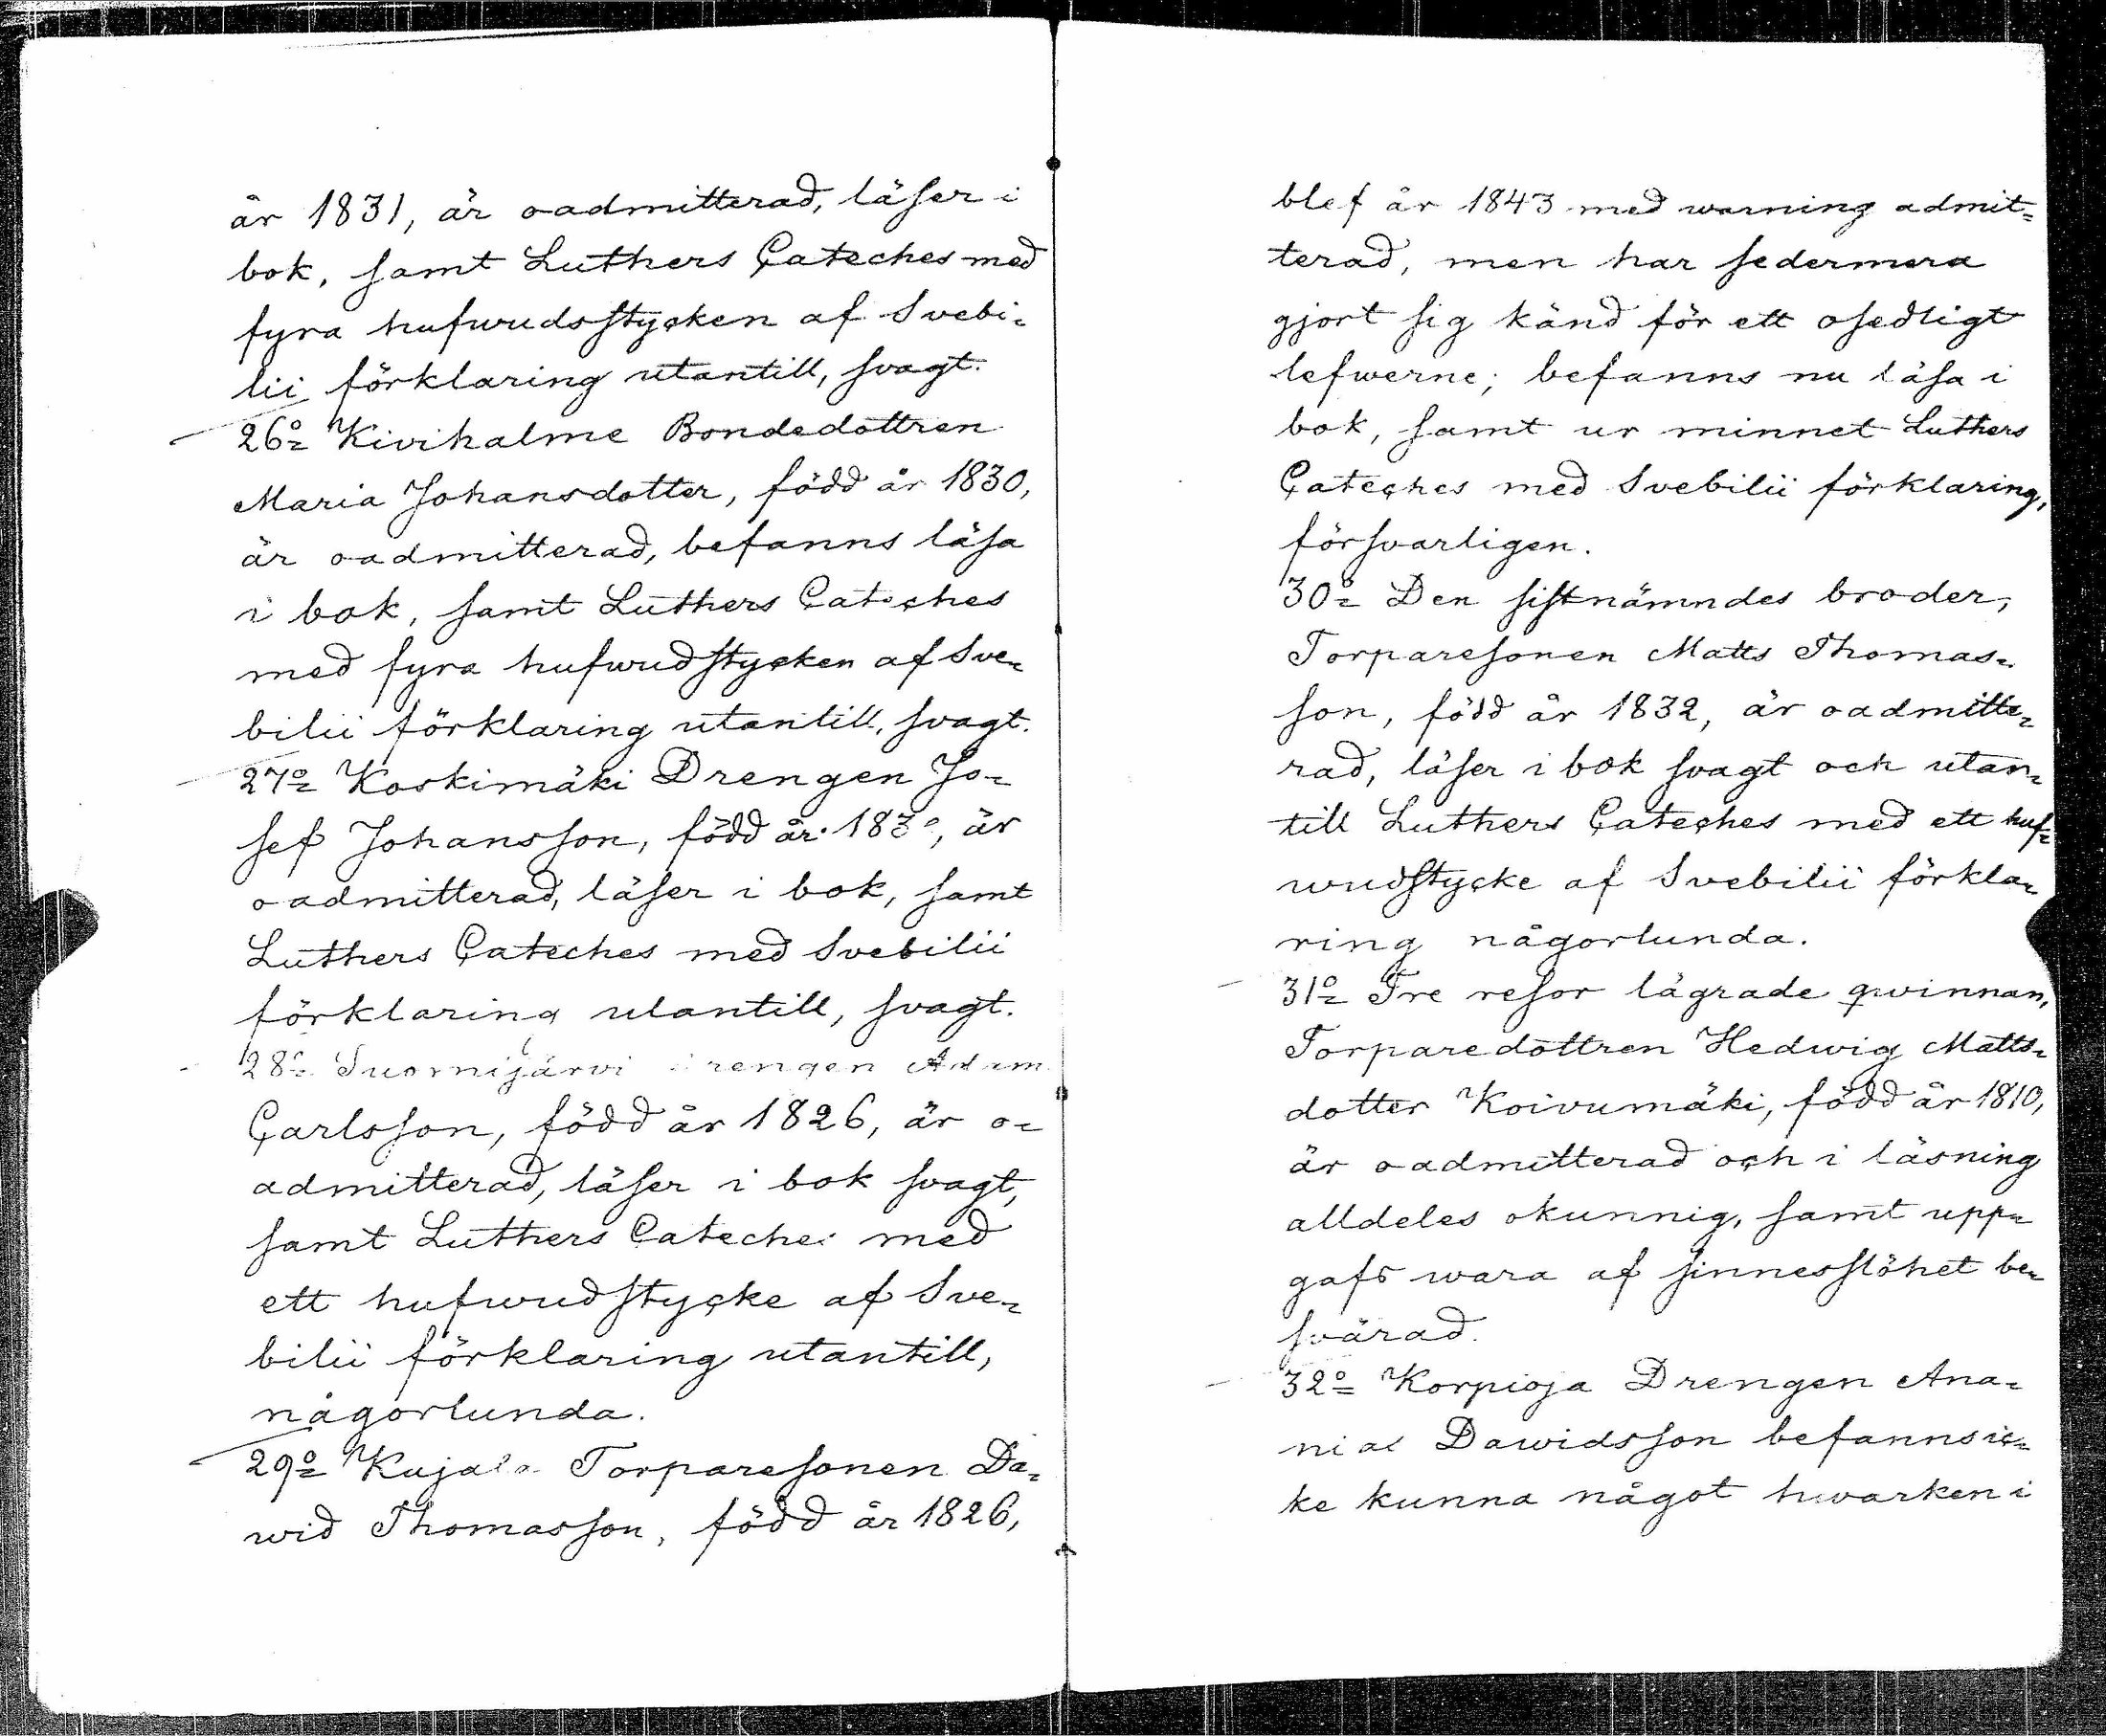 år 1831, är oadmitterad, läser i
bok, samt Luthers Cateches med
fyra hufwudsstycken af Svebi=
lii förklaring utantill, svagt.
26o= Kivihalme Bondedottren
Maria Johansdotter, född år 1830,
är oadmitterad, befanns läsa
i bok, samt Luthers Cateches
med fyra hufwudstycken af Sve=
bilii förklaring utantill, svagt.
27o= Koskimäki Drengen Jo=
sef Johansson, född år , är
oadmitterad, läser i bok, samt
Luthers Cateches med Svebilii
förklaring utantill, svagt.
28o= Suomijärvi Drengen Adam
Carlsson, född år 1826, är o=
admitterad, läser i bok svagt,
samt Luthers Cateches med
ett hufwudstycke af Sve=
bilii förklaring utantill,
någorlunda.
29o= Kujala Torparesonen Da=
wid Thomasson, född år 1826,
blef år 1843 med warning admit=
terad, men har sedermera
gjort sig känd för ett osedligt
lefwerne; befanns nu läsa i
bok, samt ur minnet Luthers
Cateches med Svebilii förklaring,
försvarligen.
30o= Den sistnämndes broder,
Torparesonen Matts Thomas=
son, född år 1832, är oadmitte=
rad, läser i bok svagt och utan=
till Luthers Cateches med ett huf=
wudstycke af Svebilii förkla=
ring någorlunda.
31o= Tre resor lägrade qwinnan,
Torparedottren Hedwig Matts=
dotter Koivumäki, född år 1810,
är oadmitterad och i läsning
alldeles okunnig, samt upp=
gafs wara af sinnesslöhet be=
svärad.
32o= Korpioja Drengen Ana=
nias Dawidsson befanns ic=
ke kunna något hwarken i